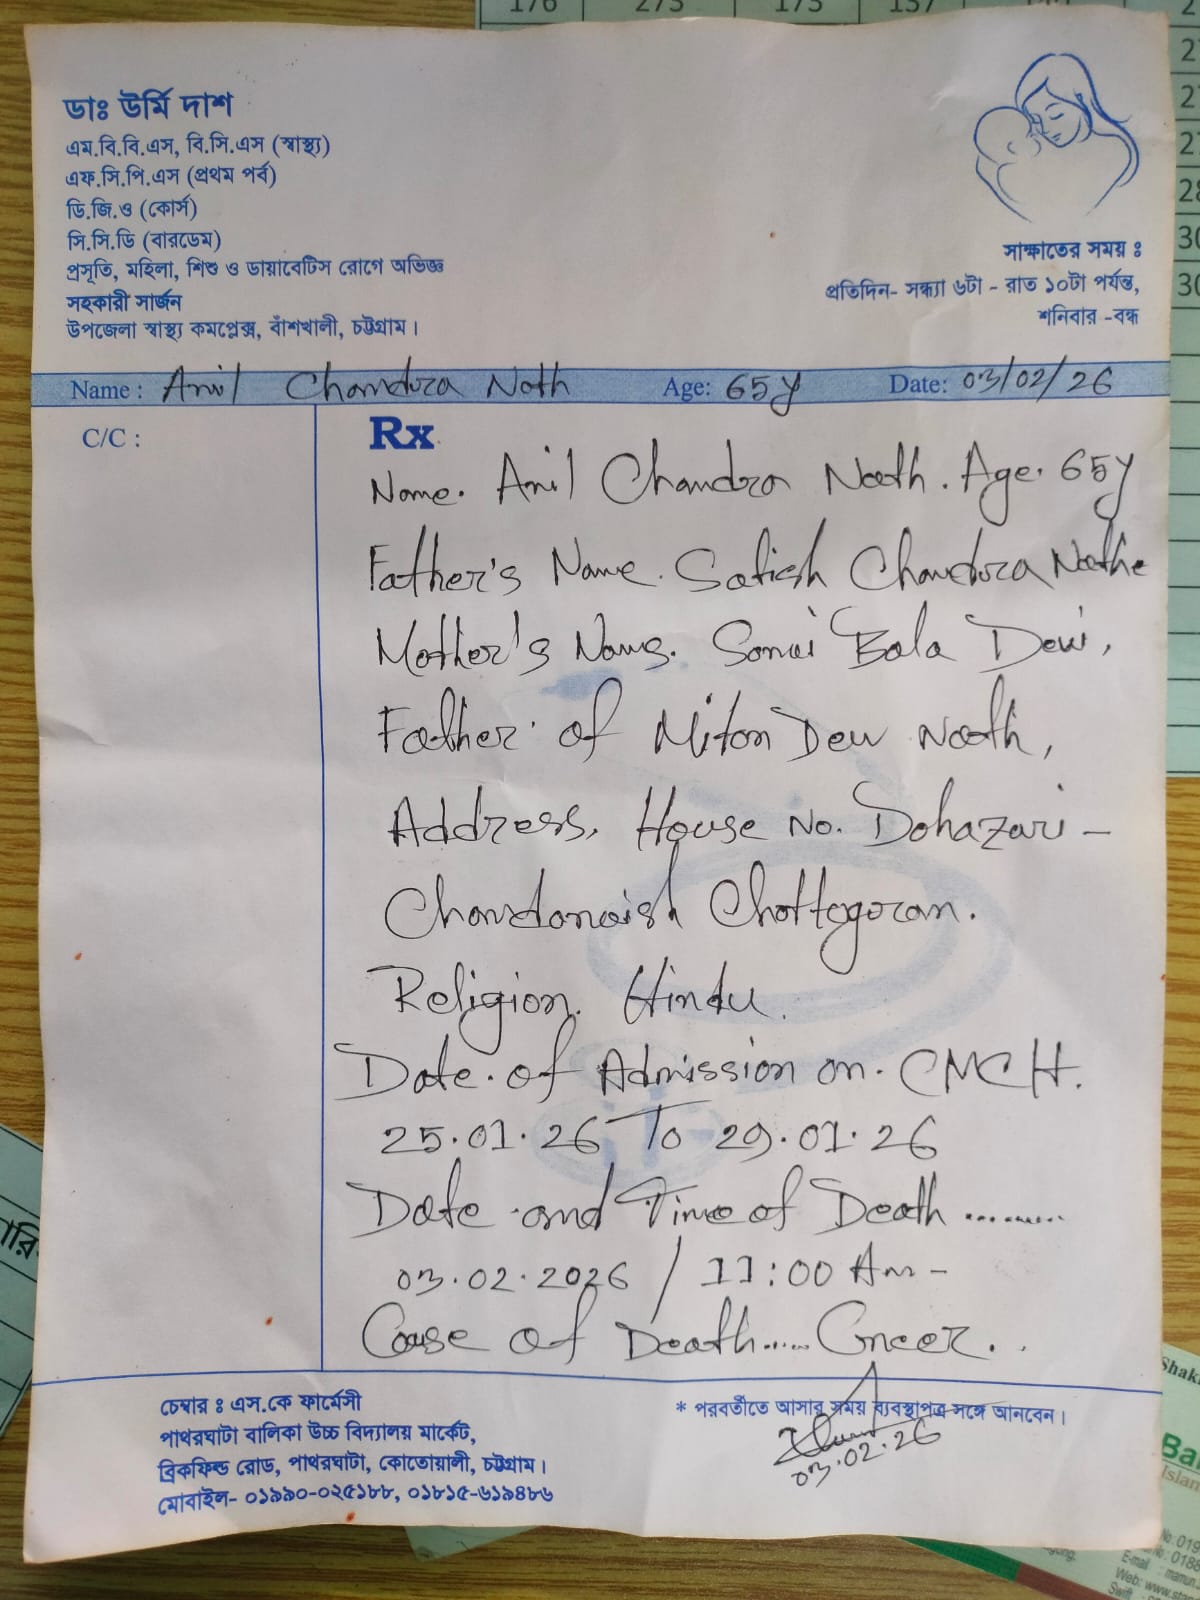 176 273 173 137
ডাঃ উর্মি দাশ
এম.বি.বি.এস, বি.সি.এস (স্বাস্থ্য)
এফ.সি.পি.এস (প্রথম পর্ব)
ডি.জি.ও (কোর্স)
সি.সি.ডি (বারডেম)
প্রসূতি, মহিলা, শিশু ও ডায়াবেটিস রোগে অভিজ্ঞ
সহকারী সার্জন
উপজেলা স্বাস্থ্য কমপ্লেক্স, বাঁশখালী, চট্টগ্রাম।
সাক্ষাতের সময় ঃ
প্রতিদিন- সন্ধ্যা ৬টা - রাত ১০টা পর্যন্ত,
শনিবার -বন্ধ
Name : Anil Chandra Nath Age: 65y Date: 03/02/26
C/C :
Rx
Name. Anil Chandra Nath. Age. 65y
Father's Name. Satish Chandra Nathe
Mother's Name. Sonai Bala Devi,
Father of Miton Dew Nath,
Address, House No. Dohazari -
Chandanaish Chottogoram.
Religion. Hindu.
Date. of Admission on. CMCH.
25.01.26 To 29.01.26
Date and Time of Death .........
03.02.2026 / 11:00 Am -
Cause of Death..... Cncer. .
চেম্বার ঃ এস.কে ফার্মেসী
পাথরঘাটা বালিকা উচ্চ বিদ্যালয় মার্কেট,
ব্রিকফিল্ড রোড, পাথরঘাটা, কোতোয়ালী, চট্টগ্রাম।
মোবাইল- ০১৯৯০-০২৫১৮৮, ০১৮১৫-৬১৯৪৮৬
* পরবর্তীতে আসার সময় ব্যবস্থাপত্র সঙ্গে আনবেন।
03.02.26